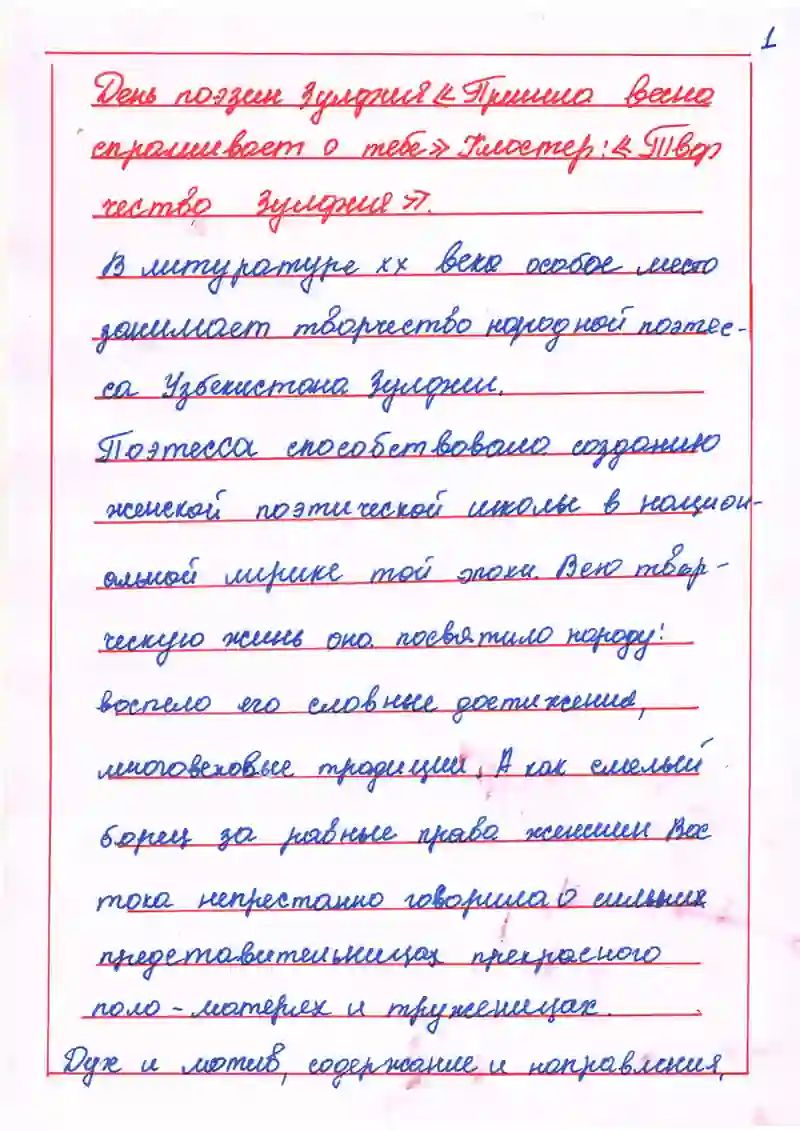 1
День поэзии Зулфия « Пришла весна
спрашивает о тебе» Кластер: « Твор
чество Зулфия».
В литуратуре хх века особое место
занимает творчество народной поэтес-
са Узбекистана Зулфии.
Поэтесса способствовала созданию
женской поэтической школы в национ-
альной лирике той эпохи. Всю твор-
ческую жинь она посвятила народу:
воспело его славные достижения,
многовековые традиции. А как смелый
борец за равные права женшин Вос
тока непрестанно говорила о сильных
представительницах прекрасного
поло - матерях и труженицах.
Дух и мотив, содержание и направления,